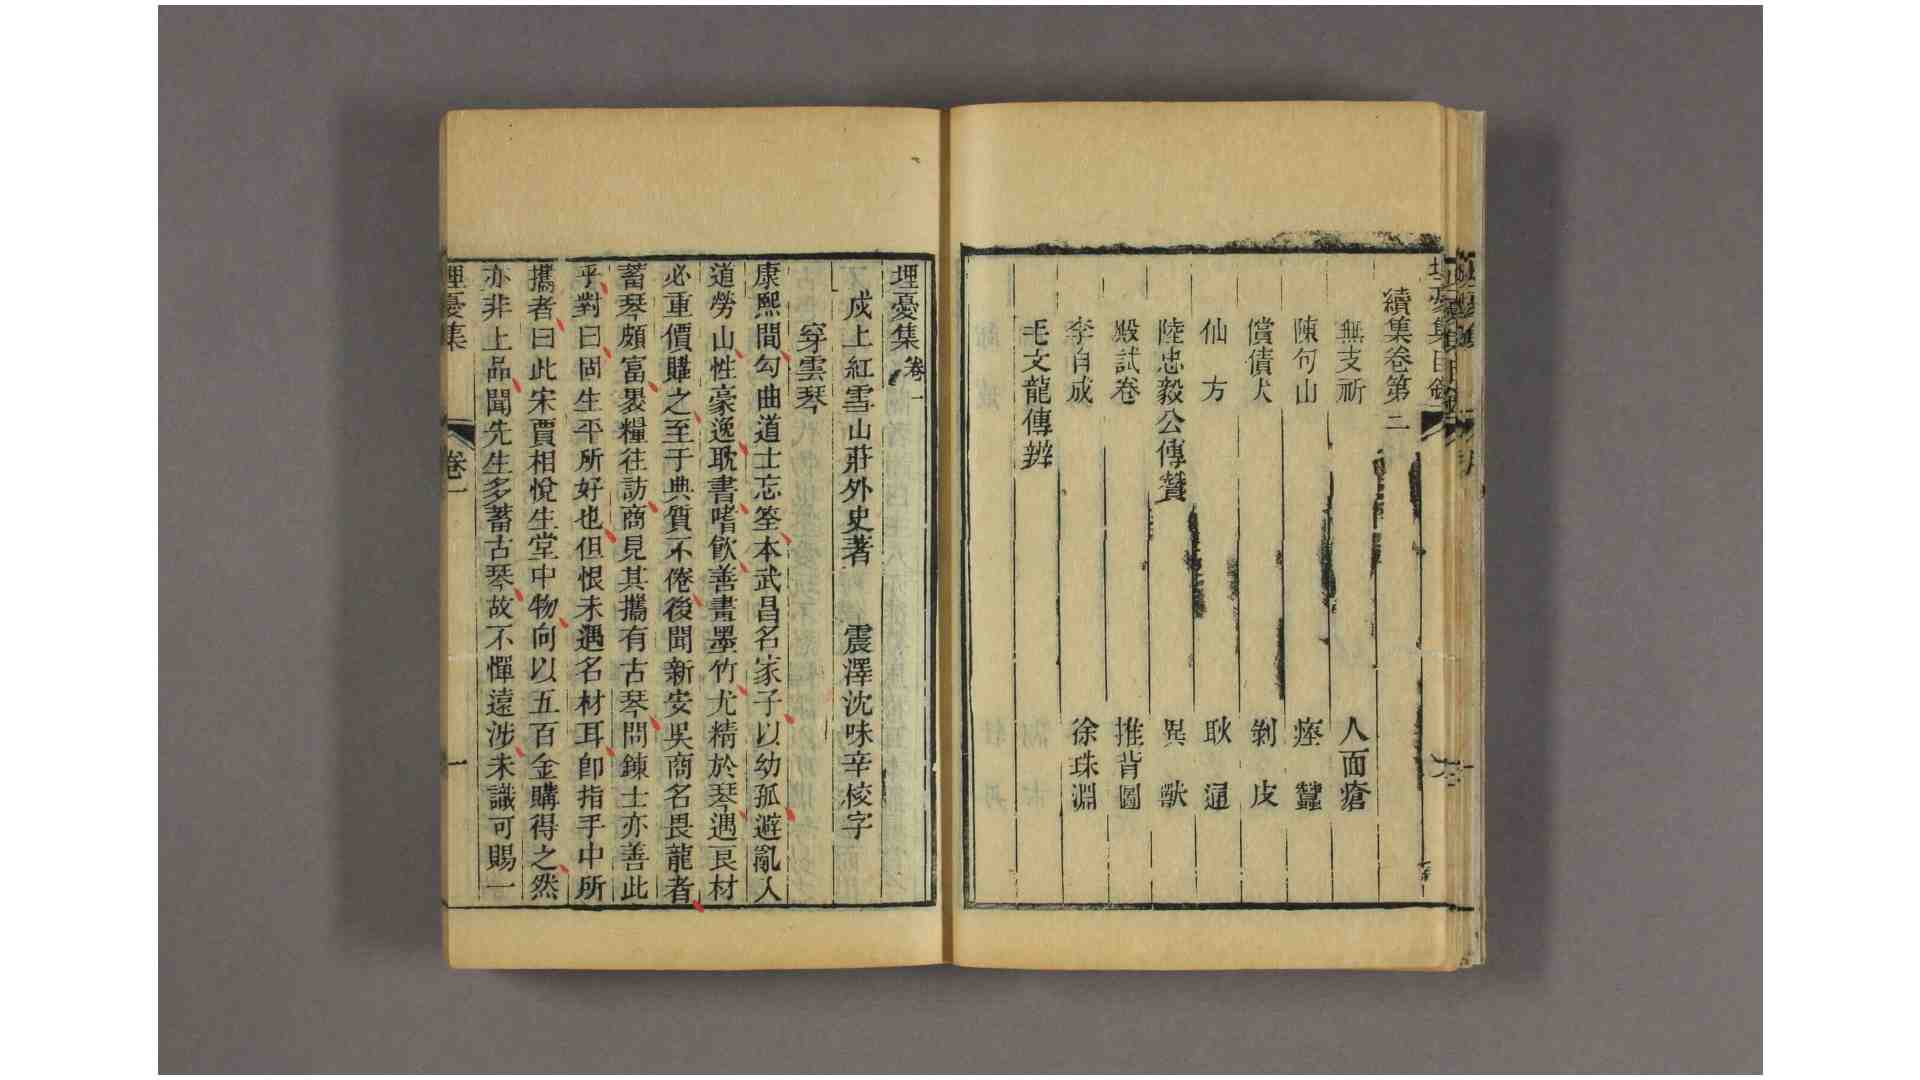 埋憂集目錄
續集卷第二
無支祈 人面瘡
陳句山 瘞蠶
償債犬 剝皮
仙方 耿通
陸忠毅公傳贊 異獸
殿試卷 推背圖
李自成 徐珠淵
毛文龍傳辨
埋憂集卷一
戍上紅雪山莊外史著 震澤沈味辛校字
穿雲琴
康熙間勾曲道士忘筌本武昌名家子以幼孤避亂入
道勞山性豪逸耽書嗜飲善畫墨竹尤精於琴遇良材
必重價購之至于典質不倦後聞新安吳商名畏龍者
蓄琴頗富褁糧往訪商見其攜有古琴問鍊士亦善此
乎對曰固生平所好也但恨未遇名材耳卽指手中所
攜者曰此宋賈相悅生堂中物向以五百金購得之然
亦非上品聞先生多蓄古琴故不憚遠涉未識可賜一
埋憂集 卷一 一